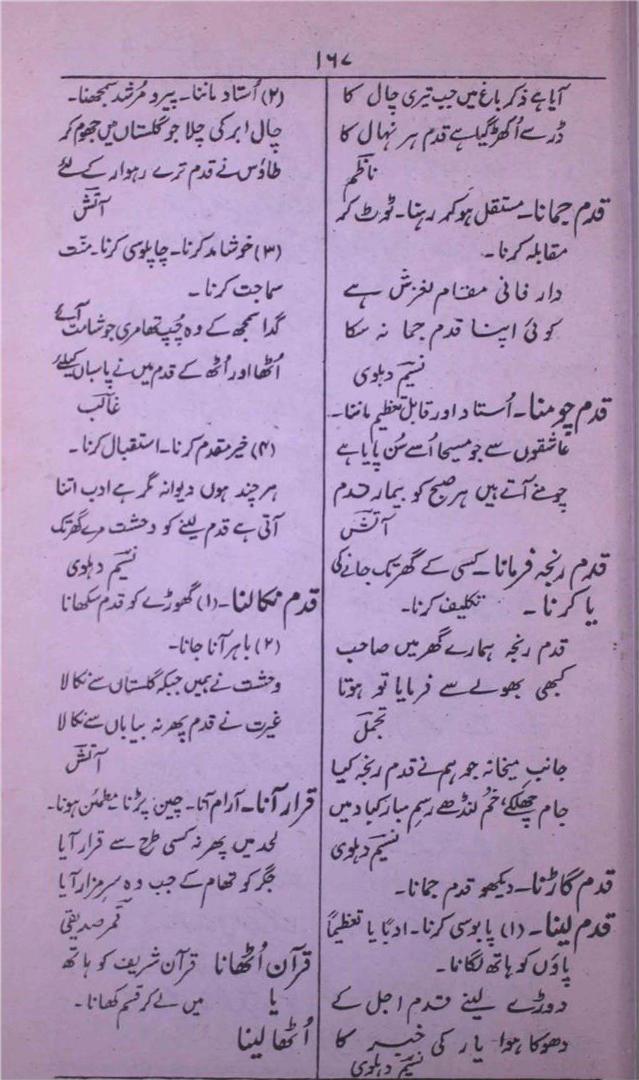 ۱۶۷
آیا ہے ذکر باغ میں جب تیری چال کا
ڈر سے اُکھڑ گیا ہے قدم ہر نہال کا
ناظم
قدم جمانا۔ مستقل ہو کر رہنا۔ ٹوٹ کر
مقابلہ کرنا۔
دار فانی مقام لغزش ہے
کوئی اپنا قدم جما نہ سکا
نسیم دہلوی
قدم چومنا۔ اُستاد اور قابل تعظیم ماننا۔
عاشقوں سے جو مسیحا اُسے سُن پایا ہے
چومنے آتے ہیں ہر صبح کو بیمار قدم
آتش
قدم رنجہ فرمانا۔ کسی کے گھر تک جانے کی
یا کرنا۔ تکلیف کرنا۔
قدم رنجہ ہمارے گھر میں صاحب
کبھی بھولے سے فرمایا تو ہوتا
تجمل
جانب میخانہ جو ہم نے قدم رنجہ کیا
جام چھلکے، خُم لنڈھے رسم مبارکباد میں
نسیم دہلوی
قدم گاڑنا۔ دیکھو قدم جمانا۔
قدم لینا۔ (۱) پابوسی کرنا۔ ادبًا یا تعظیمًا
پاؤں کو ہاتھ لگانا۔
دوڑے لینے قدم اجل کے
دھوکا ہوا یار کی خبر کا
نسیم دہلوی
(۲) اُستاد ماننا۔ پیر و مُرشد سمجھنا۔
چال ابر کی چلا جو گلستاں میں جھوم کر
طاؤس نے قدم ترے رہوار کے لئے
آتش
(۳) خوشامد کرنا۔ چاپلوسی کرنا۔ منّت
سماجت کرنا۔
گدا سمجھ کے وہ چُپ تھا مری جو شامت آئے
اُٹھا اور اُٹھ کے قدم میں نے پاسباں کیلئے
غالب
(۴) خیر مقدم کرنا۔ استقبال کرنا۔
ہر چند ہوں دیوانہ مگر ہے ادب اتنا
آتی ہے قدم لینے کو وحشت مرے گھر تک
نسیم دہلوی
قدم نکالنا۔ (۱) گھوڑے کو قدم سکھانا
(۲) باہر آنا جانا۔
وحشت نے ہمیں جبکہ گلستاں سے نکالا
غیرت نے قدم پھر نہ بیاباں سے نکالا
آتش
قرار آنا۔ آرام آنا۔ چین پڑنا مطمئن ہونا۔
لحد میں پھر نہ کسی طرح سے قرار آیا
جگر کو تھام کے جب وہ سر مزار آیا
قمر صدیقی
قرآن اُٹھانا قرآن شریف کو ہاتھ
یا میں لے کر قسم کھانا۔
اُٹھا لینا